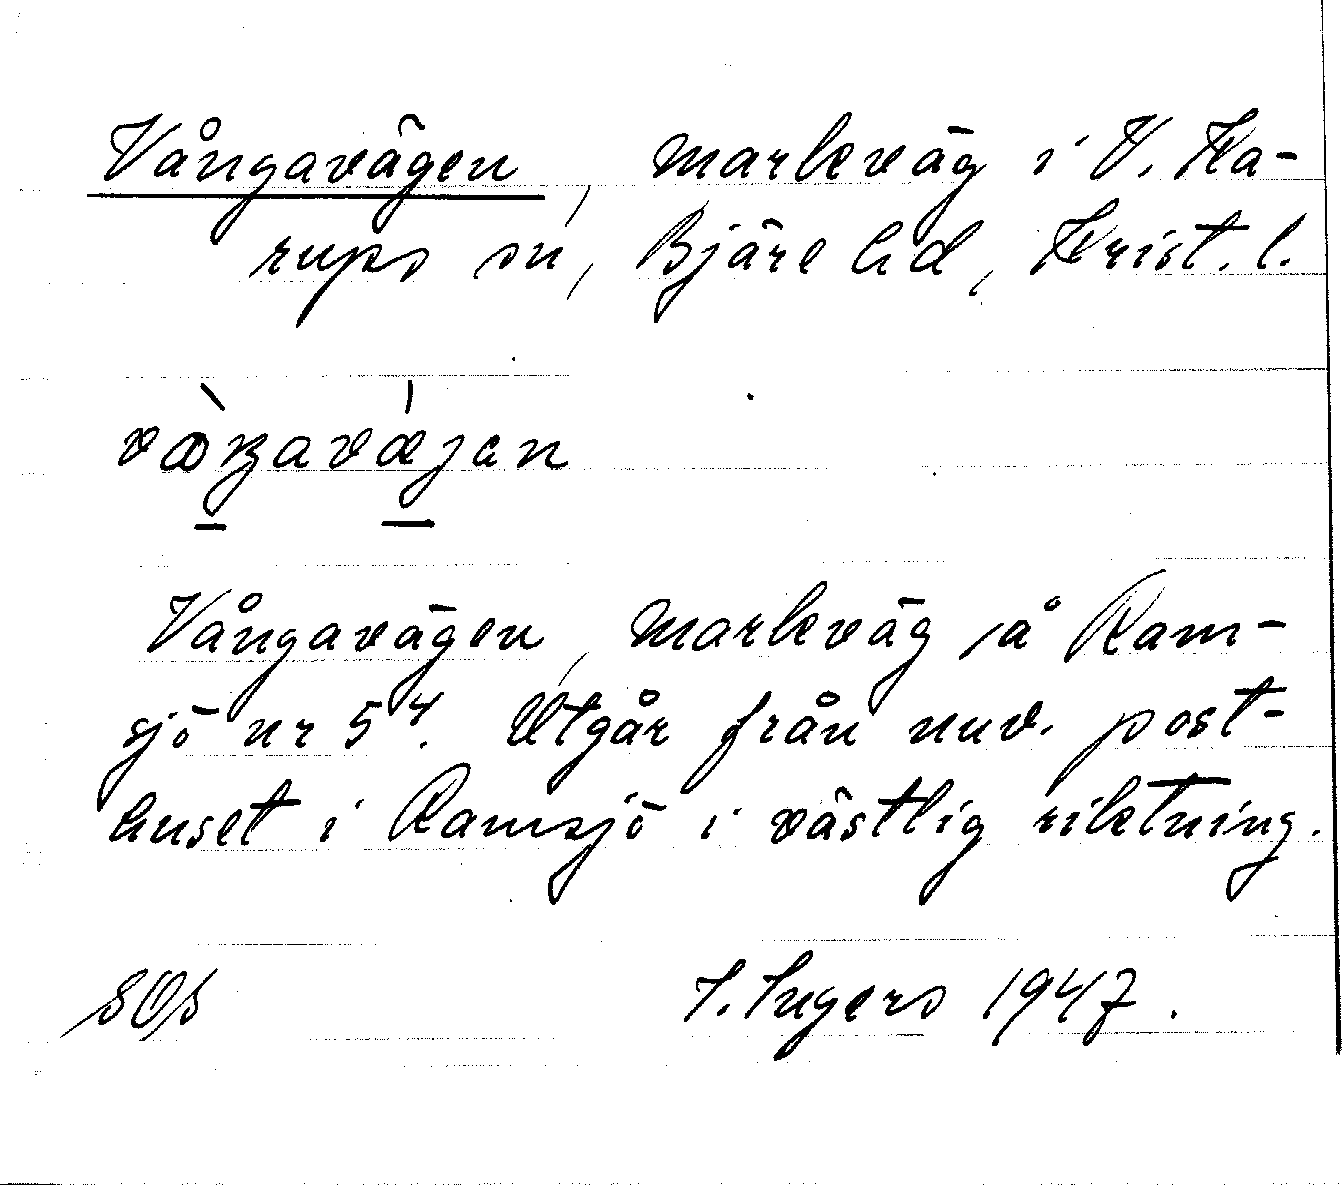 Vångavägen, markväg i V. Ka-
rups sn, Bjäre hd, Krist. l.
Vångavägen, markväg å Ram-
sjö nr 5⁴. Utgår från nuv. post-
huset i Ramsjö i västlig riktning.
SOS I. Ingers 1947.